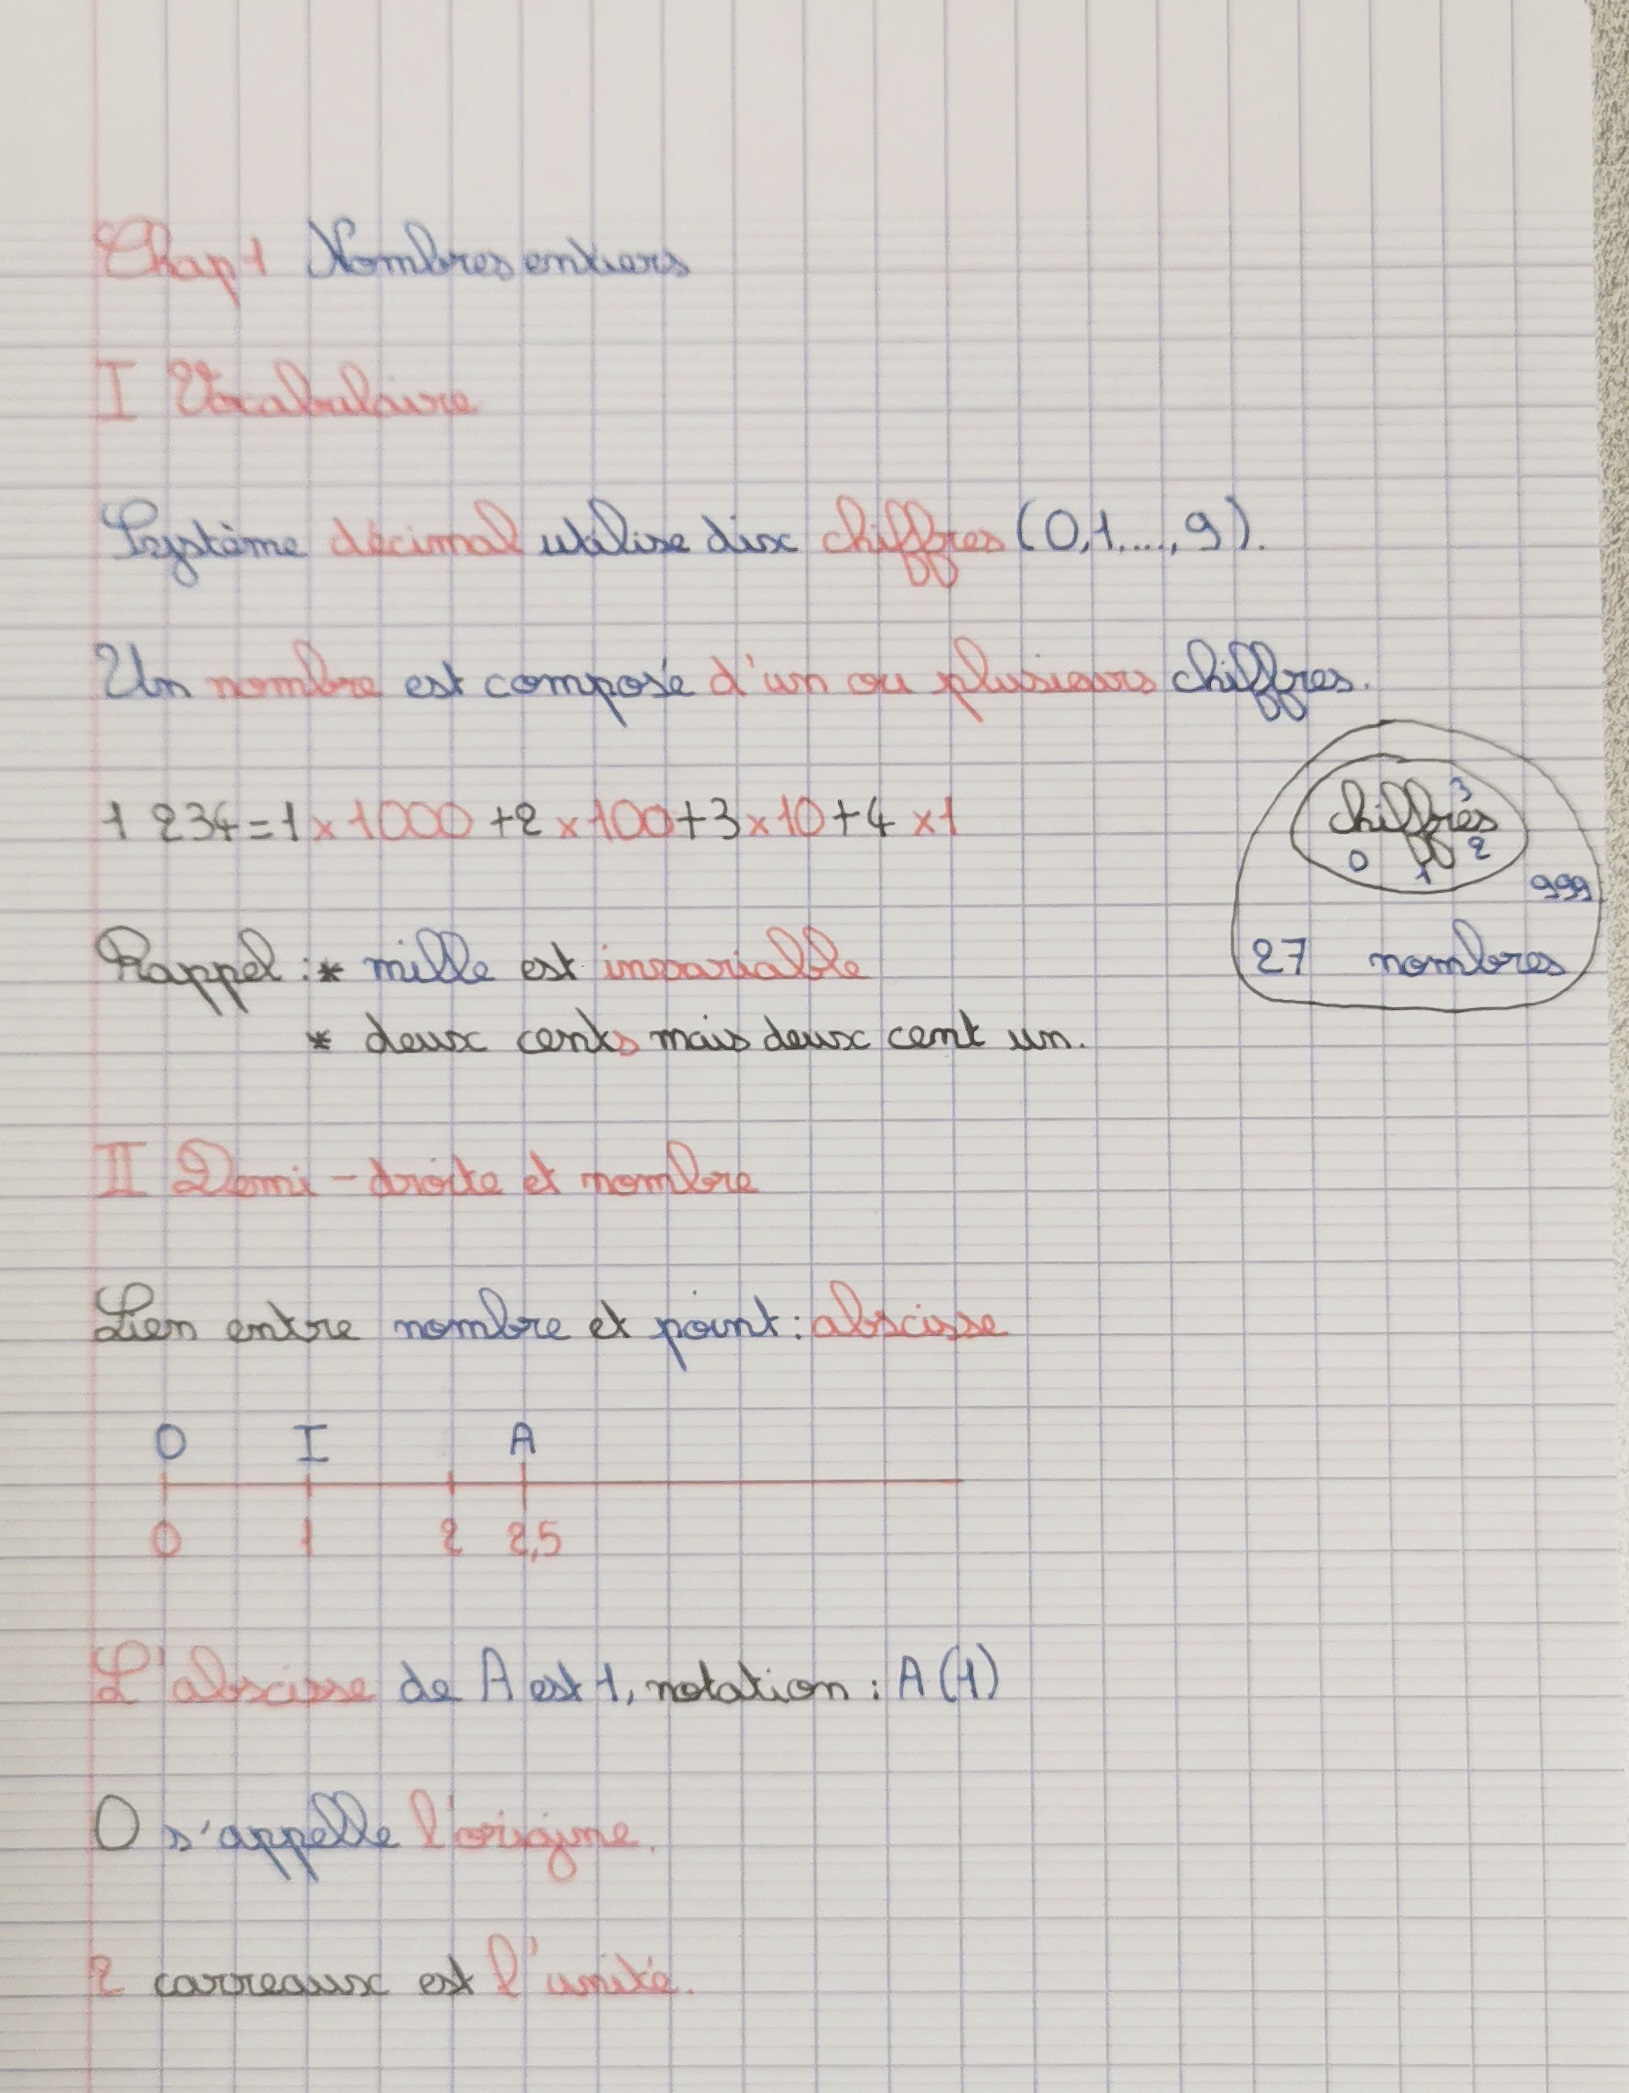 Chap 1 Nombres entiers
I Vocabulaire
Système décimal utilise dix chiffres (0,1...,9).
Un nombre est composé d'un ou plusieurs chiffres.
1 234 = 1 x 1000 + 2 x 100 + 3 x 10 + 4 x 1
3
chiffres
0 1 2
999
27 nombres
Rappel : * mille est invariable
* deux cents mais deux cent un.
II Demi-droite et nombre
Lien entre nombre et point : abscisse
O I A
0 1 2 2,5
L'abscisse de A est 1, notation : A(1)
O s'appelle l'origine.
2 carreaux est l'unité.